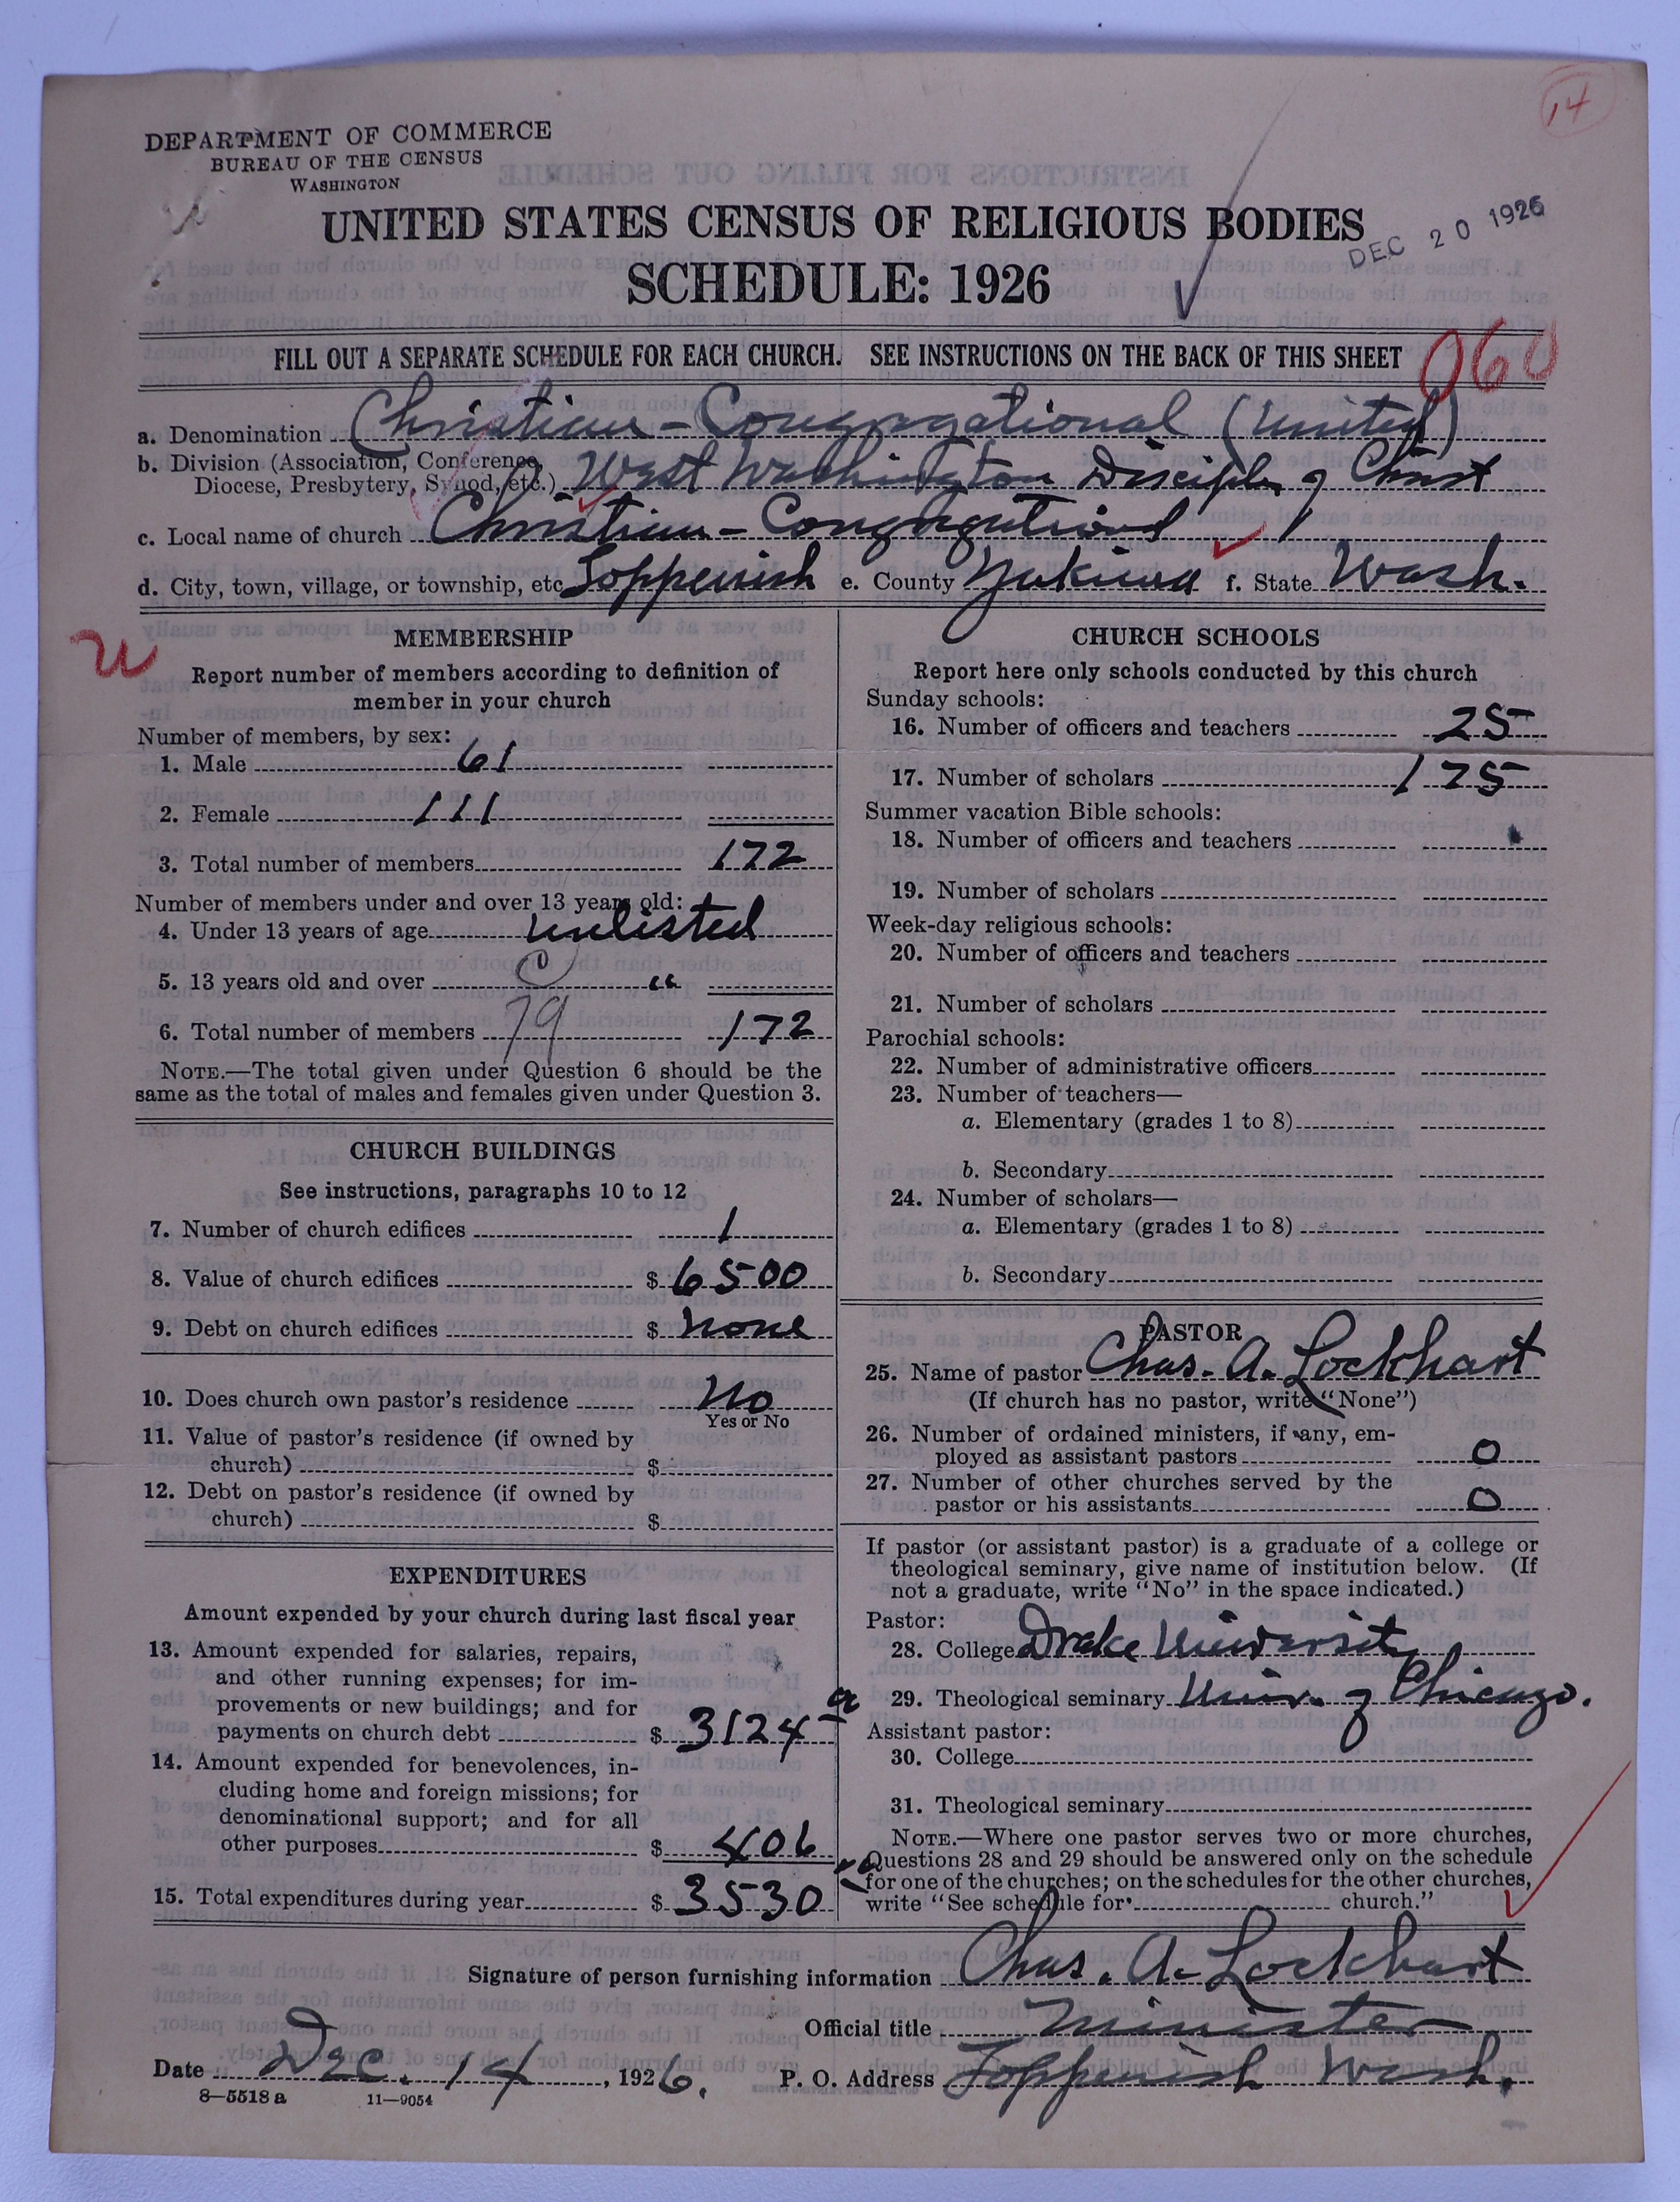 14
DEPARTMENT OF COMMERCE
BUREAU OF THE CENSUS
WASHINGTON
UNITED STATES CENSUS OF RELIGIOUS BODIES
SCHEDULE: 1926
DEC 20 1926
FILL OUT A SEPARATE SCHEDULE FOR EACH CHURCH. SEE INSTRUCTIONS ON THE BACK OF THIS SHEET
060
a. Denomination Christian - Congregational (United)
b. Division (Association, Conference, Diocese, Presbytery, Synod, etc.) West Washington Disciples of Christ
c. Local name of church Christian - Congregational
d. City, town, village, or township, etc Toppenish e. County Yakima f. State Wash.
u
MEMBERSHIP
Report number of members according to definition of
member in your church
Number of members, by sex:
1. Male 61
2. Female 111
3. Total number of members 172
Number of members under and over 13 years old:
4. Under 13 years of age unlisted
5. 13 years old and over "
6. Total number of members 79 172
NOTE.—The total given under Question 6 should be the
same as the total of males and females given under Question 3.
CHURCH BUILDINGS
See instructions, paragraphs 10 to 12
7. Number of church edifices 1
8. Value of church edifices $ 6500
9. Debt on church edifices $ none
10. Does church own pastor's residence No
Yes or No
11. Value of pastor's residence (if owned by
church) $
12. Debt on pastor's residence (if owned by
church) $
EXPENDITURES
Amount expended by your church during last fiscal year
13. Amount expended for salaries, repairs,
and other running expenses; for im-
provements or new buildings; and for
payments on church debt $ 3124
14. Amount expended for benevolences, in-
cluding home and foreign missions; for
denominational support; and for all
other purposes $ 406
15. Total expenditures during year $ 3530
CHURCH SCHOOLS
Report here only schools conducted by this church
Sunday schools:
16. Number of officers and teachers 25
17. Number of scholars 175
Summer vacation Bible schools:
18. Number of officers and teachers
19. Number of scholars
Week-day religious schools:
20. Number of officers and teachers
21. Number of scholars
Parochial schools:
22. Number of administrative officers
23. Number of teachers—
a. Elementary (grades 1 to 8)
b. Secondary
24. Number of scholars—
a. Elementary (grades 1 to 8)
b. Secondary
PASTOR
25. Name of pastor Chas. A. Lockhart
(If church has no pastor, write "None")
26. Number of ordained ministers, if any, em-
ployed as assistant pastors 0
27. Number of other churches served by the
pastor or his assistants 0
If pastor (or assistant pastor) is a graduate of a college or
theological seminary, give name of institution below. (If
not a graduate, write "No" in the space indicated.)
Pastor:
28. College Drake University
29. Theological seminary Univ. of Chicago.
Assistant pastor:
30. College
31. Theological seminary
NOTE.—Where one pastor serves two or more churches,
Questions 28 and 29 should be answered only on the schedule
for one of the churches; on the schedules for the other churches,
write "See schedule for church."
Signature of person furnishing information Chas. A. Lockhart
Official title Minister
Date Dec. 14, 1926. P. O. Address Toppenish Wash.
8—5518 a 11—9054